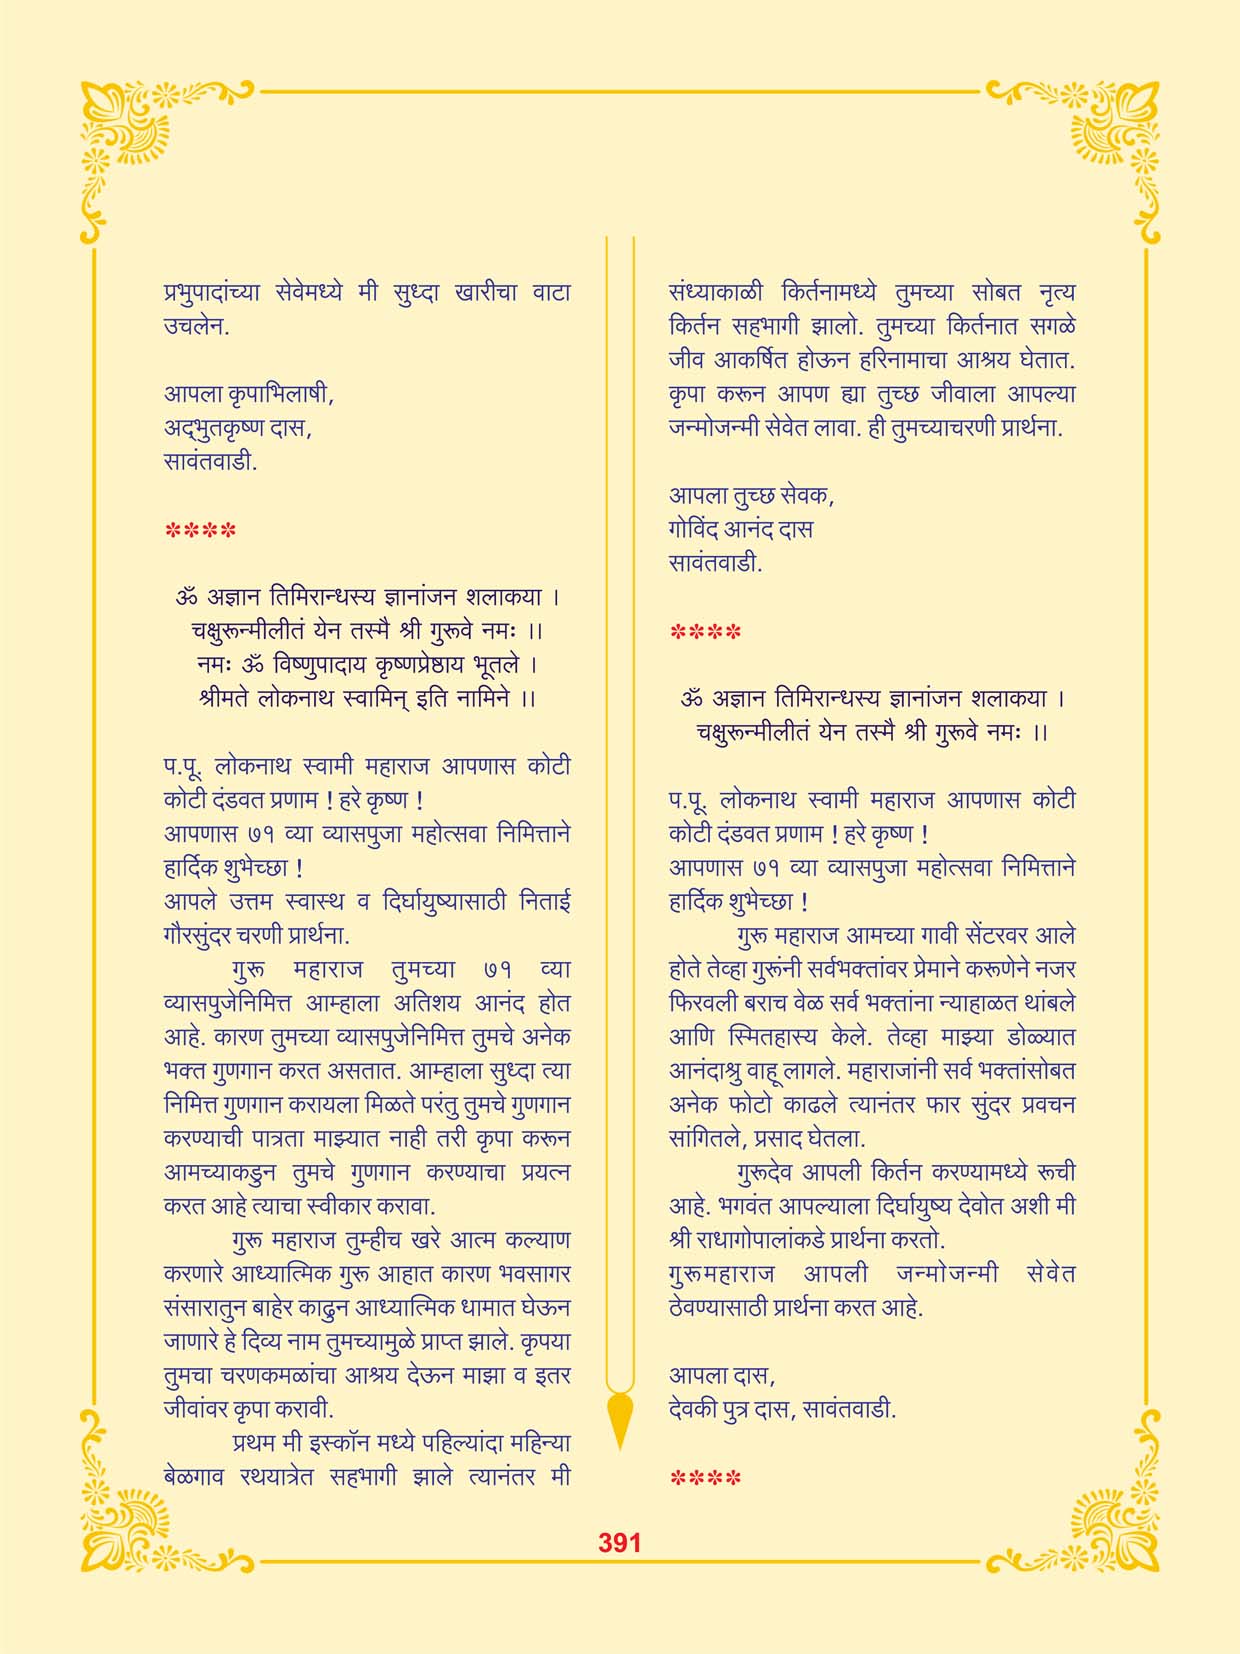 प्रभुपादांच्या सेवेमध्ये मी सुध्दा खारीचा वाटा
उचलेन.
आपला कृपाभिलाषी,
अद्‌भुतकृष्ण दास,
सावंतवाडी.
****
ॐ अज्ञान तिमिरान्धस्य ज्ञानांजन शलाकया ।
चक्षुरून्मीलीतं येन तस्मै श्री गुरूवे नमः ।।
नमः ॐ विष्णुपादाय कृष्णप्रेष्ठाय भूतले ।
श्रीमते लोकनाथ स्वामिन् इति नामिने ।।
प.पू. लोकनाथ स्वामी महाराज आपणास कोटी
कोटी दंडवत प्रणाम ! हरे कृष्ण !
आपणास ७१ व्या व्यासपुजा महोत्सवा निमित्ताने
हार्दिक शुभेच्छा !
आपले उत्तम स्वास्थ व दिर्घायुष्यासाठी निताई
गौरसुंदर चरणी प्रार्थना.
गुरू महाराज तुमच्या ७१ व्या
व्यासपुजेनिमित्त आम्हाला अतिशय आनंद होत
आहे. कारण तुमच्या व्यासपुजेनिमित्त तुमचे अनेक
भक्त गुणगान करत असतात. आम्हाला सुध्दा त्या
निमित्त गुणगान करायला मिळते परंतु तुमचे गुणगान
करण्याची पात्रता माझ्यात नाही तरी कृपा करून
आमच्याकडुन तुमचे गुणगान करण्याचा प्रयत्न
करत आहे त्याचा स्वीकार करावा.
गुरू महाराज तुम्हीच खरे आत्म कल्याण
करणारे आध्यात्मिक गुरू आहात कारण भवसागर
संसारातुन बाहेर काढुन आध्यात्मिक धामात घेऊन
जाणारे हे दिव्य नाम तुमच्यामुळे प्राप्त झाले. कृपया
तुमचा चरणकमळांचा आश्रय देऊन माझा व इतर
जीवांवर कृपा करावी.
प्रथम मी इस्कॉन मध्ये पहिल्यांदा महिन्या
बेळगाव रथयात्रेत सहभागी झाले त्यानंतर मी
संध्याकाळी किर्तनामध्ये तुमच्या सोबत नृत्य
किर्तन सहभागी झालो. तुमच्या किर्तनात सगळे
जीव आकर्षित होऊन हरिनामाचा आश्रय घेतात.
कृपा करून आपण ह्या तुच्छ जीवाला आपल्या
जन्मोजन्मी सेवेत लावा. ही तुमच्याचरणी प्रार्थना.
आपला तुच्छ सेवक,
गोविंद आनंद दास
सावंतवाडी.
****
ॐ अज्ञान तिमिरान्धस्य ज्ञानांजन शलाकया ।
चक्षुरून्मीलीतं येन तस्मै श्री गुरूवे नमः ।।
प.पू. लोकनाथ स्वामी महाराज आपणास कोटी
कोटी दंडवत प्रणाम ! हरे कृष्ण !
आपणास ७१ व्या व्यासपुजा महोत्सवा निमित्ताने
हार्दिक शुभेच्छा !
गुरू महाराज आमच्या गावी सेंटरवर आले
होते तेव्हा गुरूंनी सर्वभक्तांवर प्रेमाने करूणेने नजर
फिरवली बराच वेळ सर्व भक्तांना न्याहाळत थांबले
आणि स्मितहास्य केले. तेव्हा माझ्या डोळ्यात
आनंदाश्रु वाहू लागले. महाराजांनी सर्व भक्तांसोबत
अनेक फोटो काढले त्यानंतर फार सुंदर प्रवचन
सांगितले, प्रसाद घेतला.
गुरूदेव आपली किर्तन करण्यामध्ये रूची
आहे. भगवंत आपल्याला दिर्घायुष्य देवोत अशी मी
श्री राधागोपालांकडे प्रार्थना करतो.
गुरूमहाराज आपली जन्मोजन्मी सेवेत
ठेवण्यासाठी प्रार्थना करत आहे.
आपला दास,
देवकी पुत्र दास, सावंतवाडी.
****
391